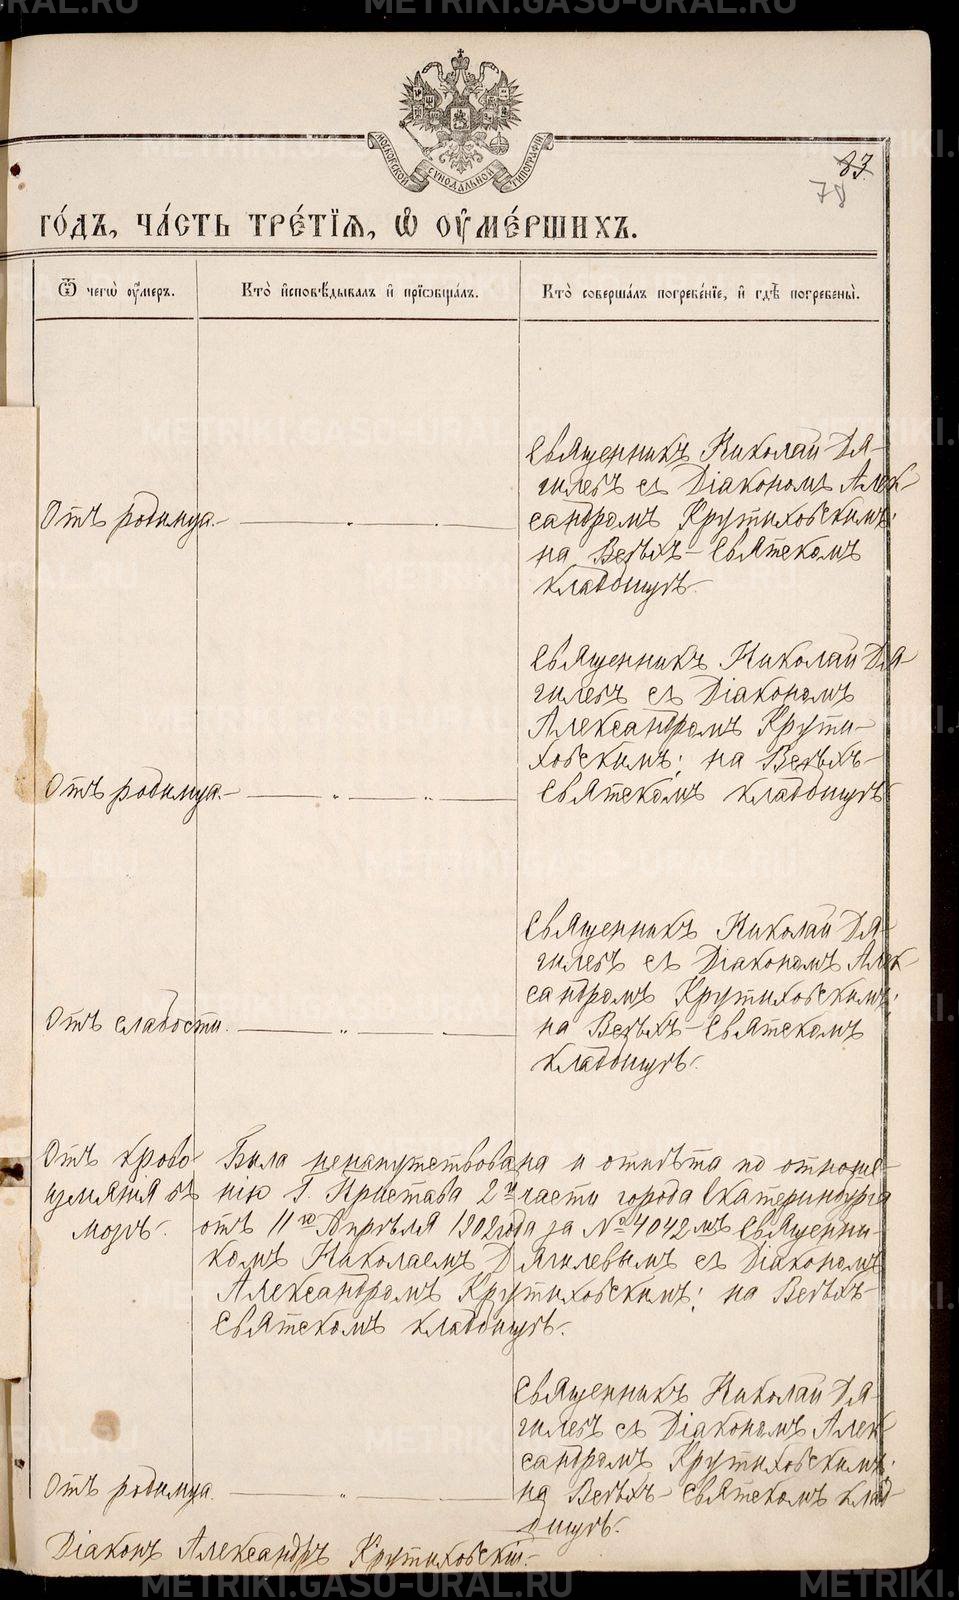 МОСКОВСКОЙ СѴНОДАЛЬНОЙ ТИПОГРАФІИ
83.
78
го́дъ, ча́сть тре́тїѧ, ѡ҆ ᲂу҆ме́ршихъ.
Ѿ чегѡ̀ ᲂу҆́меръ.
Кто̀ и҆сповѣ́дывалъ и҆ прїѡбща́лъ.
Кто̀ соверша́лъ погребе́нїе, и҆ гдѣ̀ погребены̀.
Священникъ Николай Дя-
гилевъ съ Діакономъ Алек-
сандромъ Крутиховскимъ;
на Всѣхъ-Святскомъ
кладбищѣ.
Отъ родимца.
Священникъ Николай Дя-
гилевъ съ Діакономъ
Александромъ Крути-
ховскимъ; на Всѣхъ-
Святскомъ кладбищѣ.
Отъ родимца.
Священникъ Николай Дя-
гилевъ съ Діакономъ Алек-
сандромъ Крутиховскимъ;
на Всѣхъ-Святскомъ
кладбищѣ.
Отъ слабости.
Отъ крово
излиянія въ
мозгъ.
Была ненапутствована и отпѣта по отноше-
нію Г. Пристава 2й части города Екатеринбурга
отъ 11го Апрѣля 1902 года за № 4042мъ Священни-
комъ Николаемъ Дягилевымъ съ Діакономъ
Александромъ Крутиховскимъ; на Всѣхъ-
Святскомъ кладбищѣ.
Священникъ Николай Дя-
гилевъ съ Діакономъ Алек-
сандромъ Крутиховскимъ;
на Всѣхъ-Святскомъ клад-
бищѣ.
Отъ родимца.
Діаконъ Александръ Крутиховскій.
METRIKI.GASO-URAL.RU